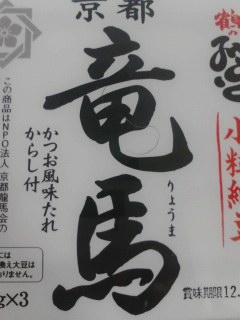 京都
竜馬
りょうま
かつお風味たれ
からし付
この商品はNPO法人 京都龍馬会の
小粒納豆
には
換え大豆は
りません。
g×3
賞味期限12.